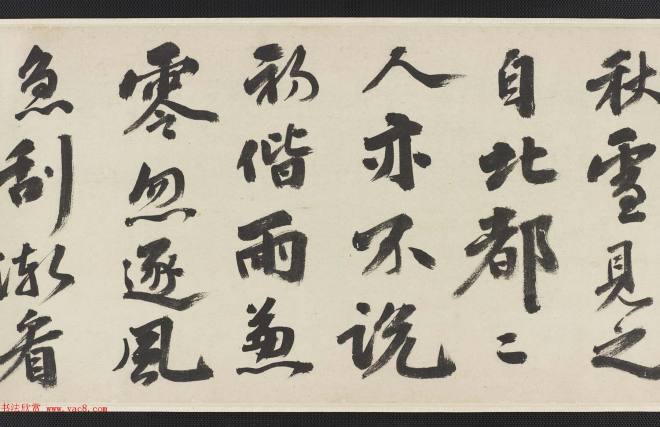 秋雪見之
自北都二
人亦不説
初偕雨兼
零忽逐風
急刮漸看
书法欣赏 www.yac8.com